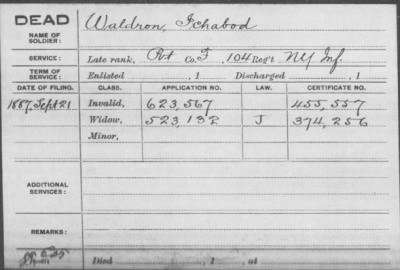 DEAD
NAME OF SOLDIER: Waldron, Ichabod
SERVICE: Late rank, Pvt Co. F, 104 Reg't NY Inf.
TERM OF SERVICE: Enlisted , 1 Discharged , 1
DATE OF FILING. CLASS. APPLICATION NO. LAW. CERTIFICATE NO.
1887, Sept 21 Invalid, 623,567 455,557
Widow, 523,132 J 374,256
Minor,
ADDITIONAL SERVICES:
REMARKS:
Died , 1 , at